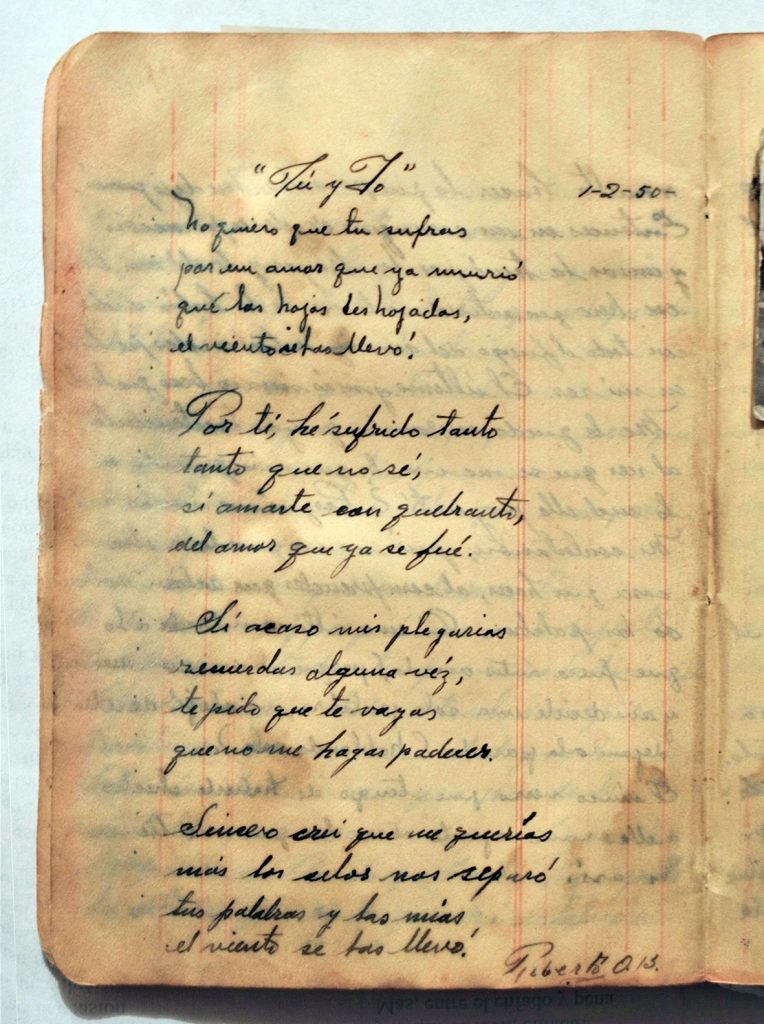 "Tú y Yo"
1-2-50-
No quiero que tu sufras
por un amor que ya murió
que las hojas deshojadas,
el viento se las llevó!
Por ti, he sufrido tanto
tanto que no sé,
si amarte con quebranto,
del amor que ya se fué.
Si acaso mis plegarias
recuerdas alguna véz,
te pido que te vayas
que no me hagas padecer.
Sincero crei que me querías
más los selos nos separó
tus palabras y las mías
el viento se las llevó!
Roberto O.B.